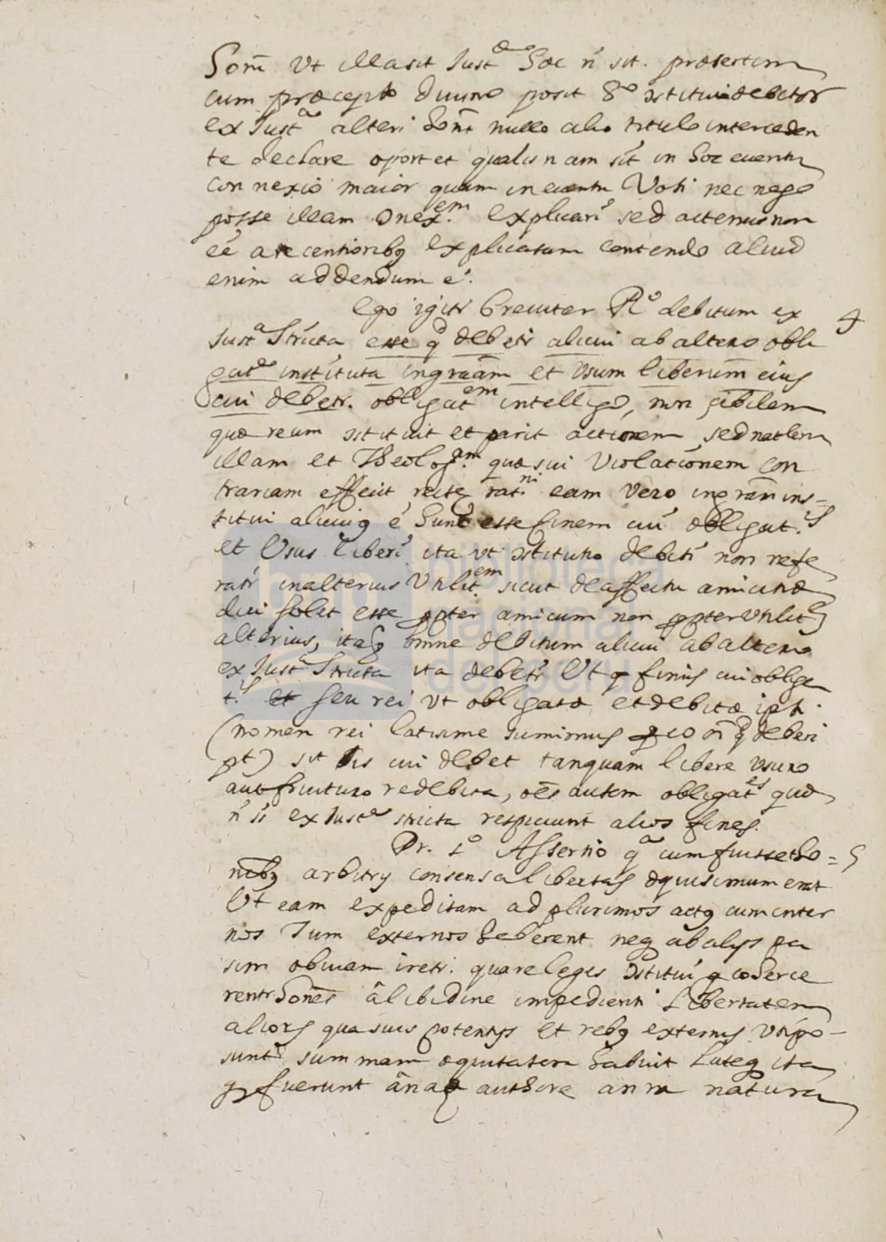 Homī Vt illa sit Just^æ Hoc n̄ sit. præsertim
cum præcepto divino posit H^o ↄstitui debitor
ex Just^a alteri Homī nullo alio titulo interceden
te declare oportet qualis nam sit in Hoc eventu
connexio maior quam in eventu Voti nec nego
posse illam ↄnex^em explicari sed actenus non
eē a recentiorib9 explicatam contendo aliud
enim addendum e.
Ego igitr breviter R^o debitum ex 4
Just^a Stricta esse q̄ debetr alicui ab altero obli
gat^o instituta in gratiam et Vsum liberum eius
cui debetr. obligat^em intelligo, non civilem
quæ reum ↄstituit et parit actionem, sed natlem
illam et Theolog^am quæ sui Violationem con
trariam efficit rectæ rat^ni eam vero in gratiam ins=
titui alicui9 ē Hunc esse finem cui obligat^s
et Vsus liberi ita vt ↄstitutio debiti non refe
ratr in alterius Vtilit^em sicut de affectu amicitiæ
dici solet esse propter amicum non propter Vtilit^em
alterius, itaq omne debitum alicui ab altero
ex Just^a Stricta ita debetr Vt q finis cui obliga
t^s seu rei vt obligatæ et debitæ ipsi
(nomen rei latissime sumimus pro eo oī q̄ deberi
pt) sit is cui debet tanquam libere vsuro
aut fruituro re debita, oēs autem obligat^es quæ
n̄ st ex Just^a stricta respiciunt alios fines.
Pr. 1^o Assertio q^a cum fuisset Ho= 5
nib9 arbitrij concensa libertas æquisimum erat
Vt eam expeditam ad plurimos act9 cum inter
nos Tum externos Heberent neq ab alijs pa
sim obviam iretr. quare leges ↄstitui q coHerce
rentr Hoēs a libidine impedienti Libertatem
alior9 qua suis potentijs et reb9 externis Vti po-
sunt summam æquitatem Habuit Lateq ita
q fuerunt authore natura